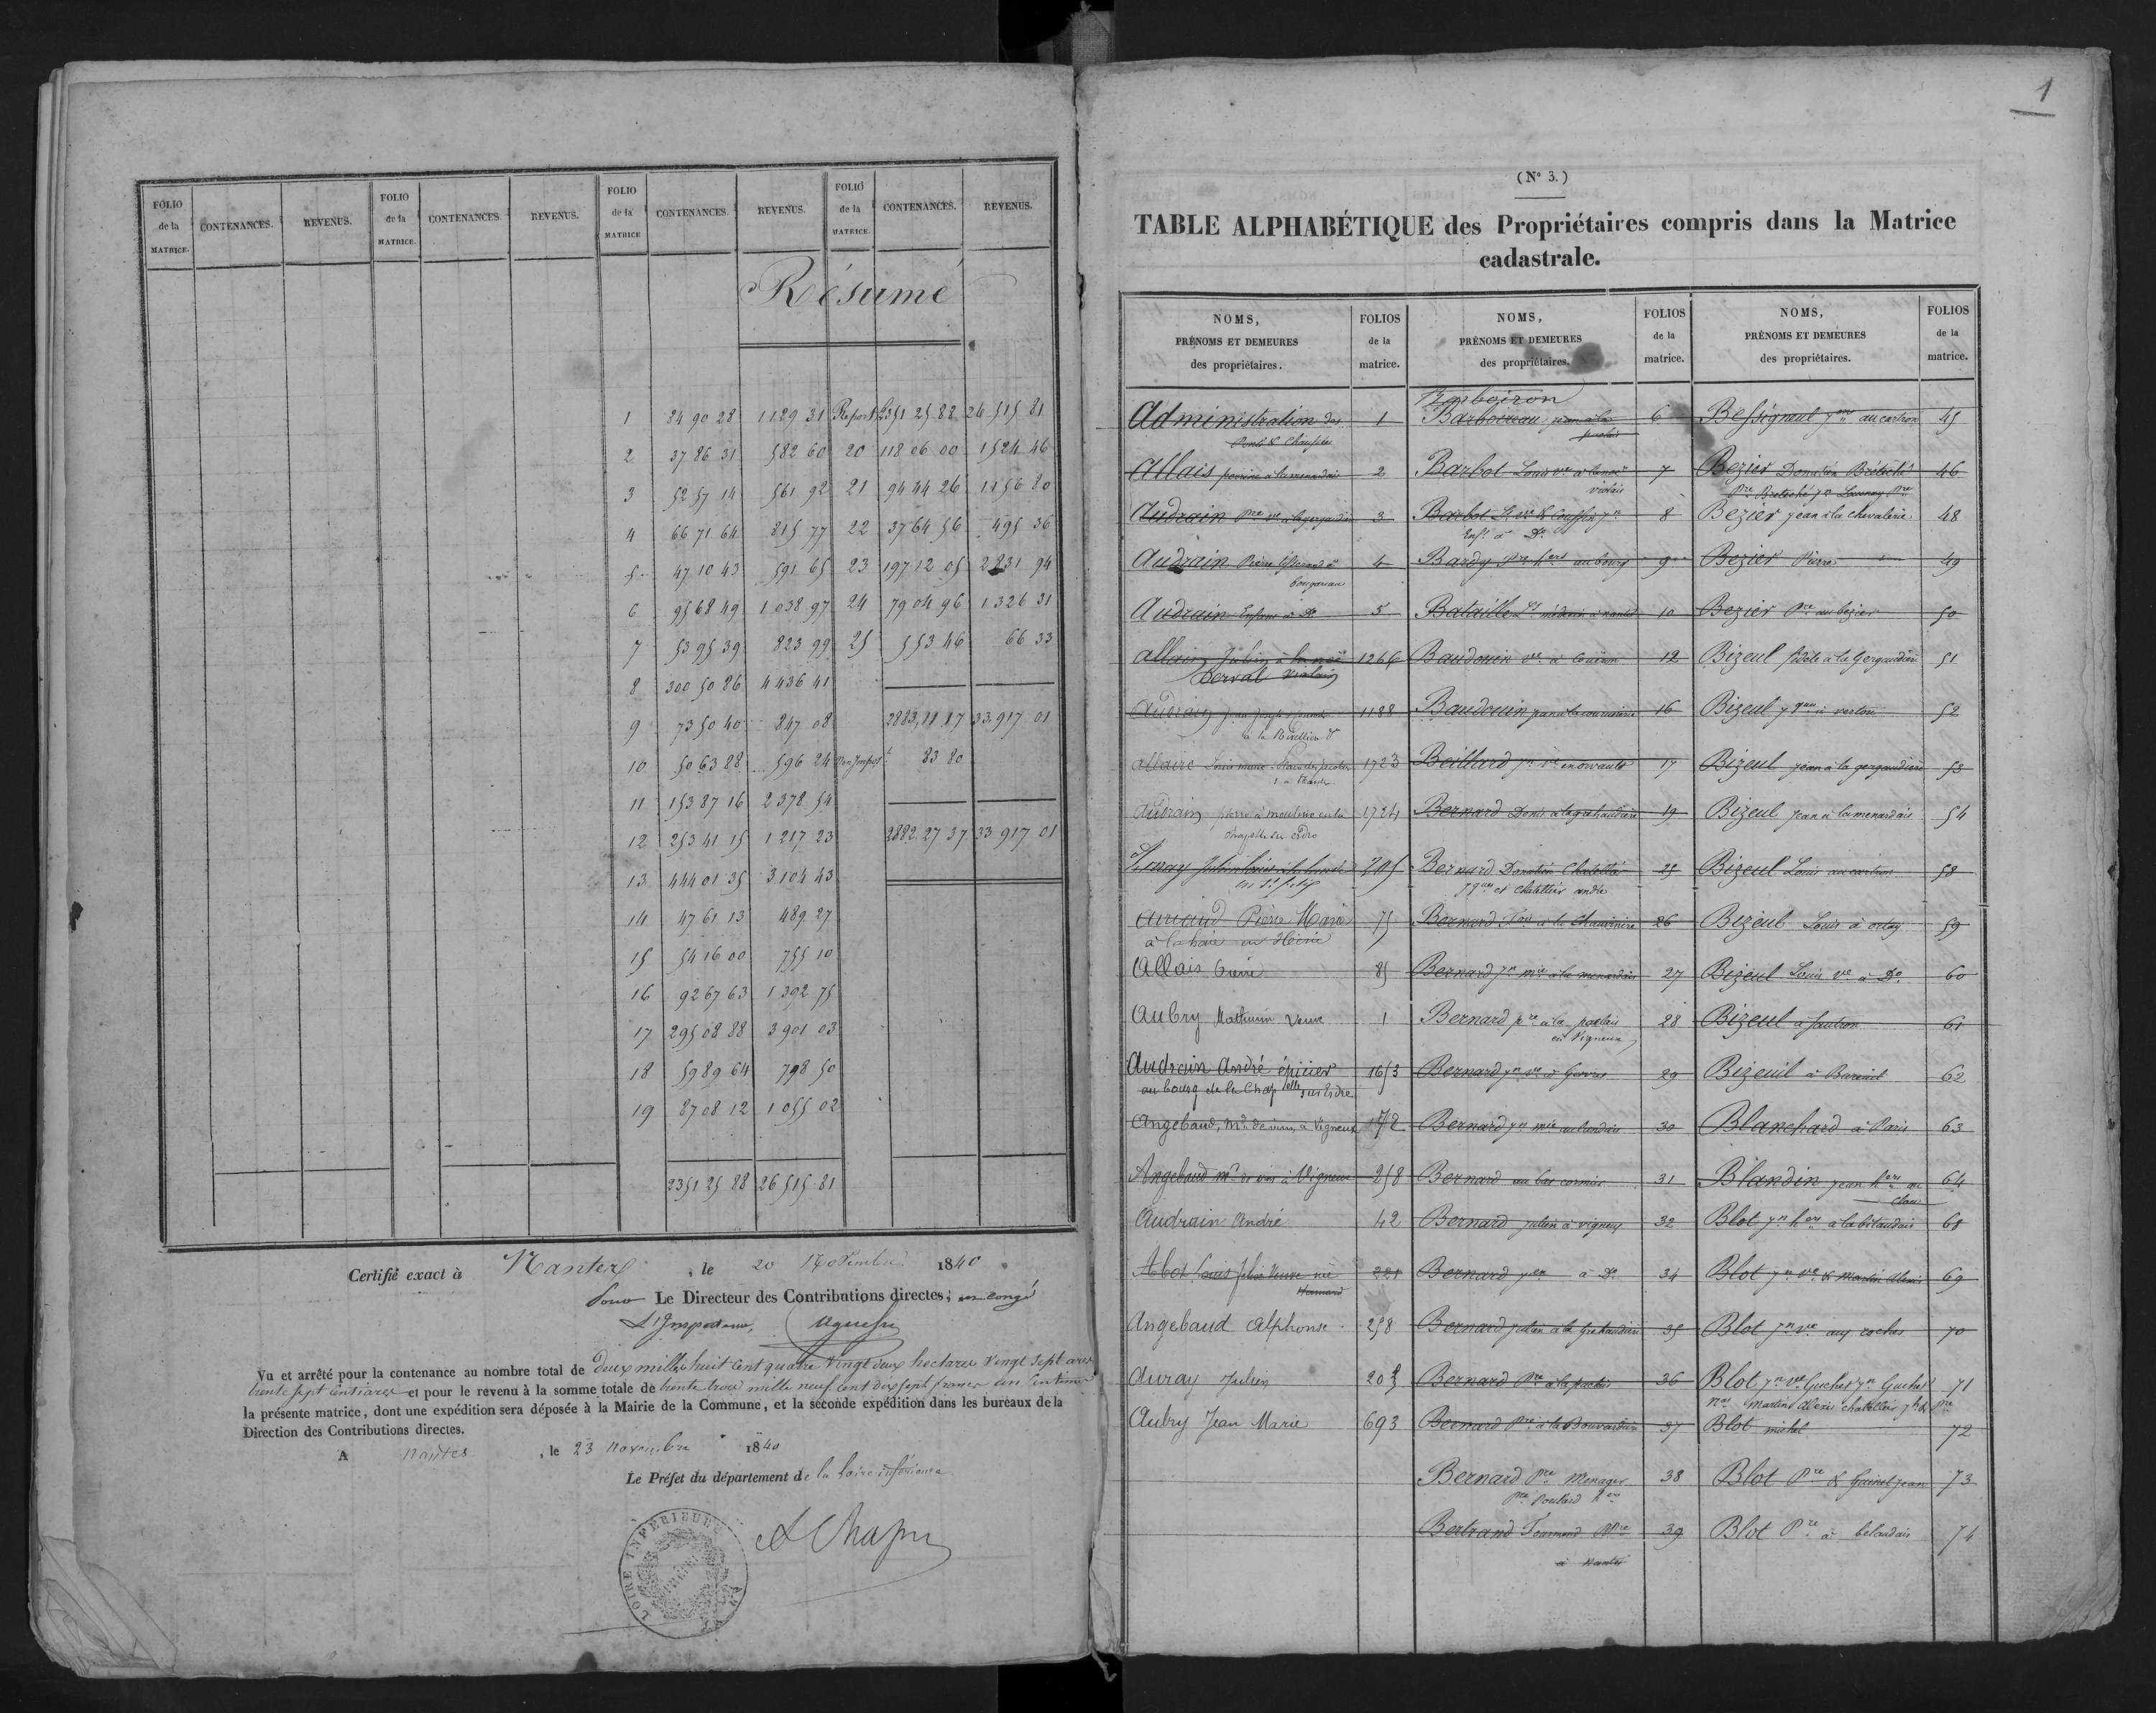 FOLIO de la MATRICE. CONTENANCES. REVENUS. FOLIO de la MATRICE. CONTENANCES. REVENUS. FOLIO de la MATRICE CONTENANCES. REVENUS. FOLIO de la MATRICE. CONTENANCES. REVENUS.
Résumé
1 84 90 28 1129 31 Report 2351 25 88 26 515 81
2 37 86 31 582 60 20 118 06 00 1524 46
3 52 57 14 561 92 21 94 44 26 1156 80
4 66 71 64 815 77 22 37 64 56 495 36
5 47 10 43 591 65 23 197 12 05 2831 94
6 95 68 49 1038 97 24 79 04 96 1326 31
7 53 95 39 823 99 25 5 53 46 66 33
8 300 50 86 4436 41
9 73 50 40 847 08 2883,11 17 33,917 01
10 50 63 88 596 24 Non Impos.t 83 80
11 153 87 16 2378 54
12 253 41 15 1217 23 2882 27 37 33 917 01
13 444 01 35 3104 43
14 47 61 13 489 27
15 54 16 00 755 10
16 92 67 63 1392 75
17 295 08 88 3901 03
18 59 89 64 798 50
19 87 08 12 1055 02
2351 25 88 26 515 81
Certifié exact à Nantes, le 20 Novembre 1840
Pour Le Directeur des Contributions directes, en congé
L'Inspecteur,
Vu et arrêté pour la contenance au nombre total de deux mille huit cent quatre vingt deux hectares vingt sept ares
trente sept centiares et pour le revenu à la somme totale de trente trois mille neuf cent dix sept francs un centime
la présente matrice, dont une expédition sera déposée à la Mairie de la Commune, et la seconde expédition dans les bureaux de la
Direction des Contributions directes.
A nantes, le 23 novembre 1840
Le Préfet du département de la Loire inférieure
LOIRE INFERIEURE
1
(N° 3.)
TABLE ALPHABÉTIQUE des Propriétaires compris dans la Matrice
cadastrale.
NOMS, PRÉNOMS ET DEMEURES des propriétaires. FOLIOS de la matrice.
Administration des 1
Ponts & Chaussées
Allais perrine à la menardais 2
Audrain Pre ve à la gergaudière 3
Audrain Pierre 4
Audrain Enfans à Do 5
allain Julien à la noë 1266
Derval
Audrain 1188
allaire Louis marie 1723
Audrain pierre à 1724
Chapelle sur Erdre
205
Pierre Marie 75
à la haie
Allais Pierre 85
Aubry Mathurin Veuve 1
Audrain André épicier 1653
au bourg de la Chapelle sur Erdre
Angebaud, Md de vins, à Vigneux
Angebaud md de vins à Vigneux 258
Audrain André 42
Abot Louis Veuve née 221
Angebaud Alphonse 258
Auray Julien 205
Aubry Jean Marie 693
NOMS, PRÉNOMS ET DEMEURES des propriétaires. FOLIOS de la matrice.
Barboiron
6
Barbot Louis ve à la noë 7
violais
Barbot 8
Enfs à Do
Bardy Pre hers au bourg 9
Bataille médecin à nantes 10
Baudouin ve à Couëron 12
Baudouin jean à la 16
Beillard jn ve en orvault 17
Bernard Denis à la grehaudière 19
Bernard Donatien Chatellier 25
et chatellier andré
Bernard à la Chauvinière 26
Bernard jn mie à la menardais 27
Bernard pre à la paclais 28
en Vigneux
Bernard jn ve à Gesvres 29
Bernard jn mie au landais 30
Bernard au bas cormier 31
Bernard julien à vigneux 32
Bernard à Do 34
Bernard julien à la Grehaudière 35
Bernard Pre à la paclais 36
Bernard Pre à la Bouvardière 37
Bernard Pre Menager 38
Pre Poulard hers
Bertrand Pre 39
à Nantes
NOMS, PRÉNOMS ET DEMEURES des propriétaires. FOLIOS de la matrice.
Bessigneul au cartron 45
Bezier Donatien 46
Bezier jean à la chevalerie 48
Bezier Pierre 49
Bezier Pre au bezier 50
Bizeul fidele à la Gergaudière 51
Bizeul à vertou 52
Bizeul jean à la gergaudière 53
Bizeul jean à la menardais 54
Bizeul Louis au cartron 58
Bizeul Louis à 59
Bizeul Louis ve à Do 60
Bizeul à Sautron 61
Bizeuil à 62
Blanchard à Paris 63
Blandin jean hers au 64
Blot jn hers à la bilaudais 68
Blot jn ve & martin Alexis 69
Blot jn ve aux roches 70
Blot jn ve Guchet jn Guchet 71
martin Alexis chatellier
Blot michel 72
Blot Pre & Guinel jean 73
Blot Pre à belaudais 74